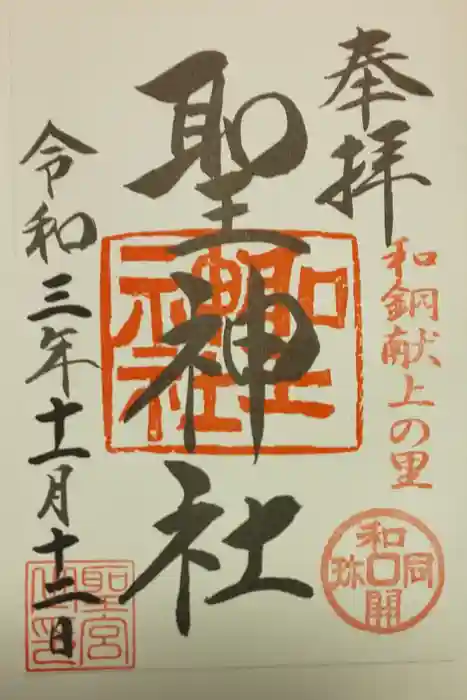 奉拝
和銅献上の里
和同開珎
聖神社
聖神社
令和三年十一月十二日
聖宮